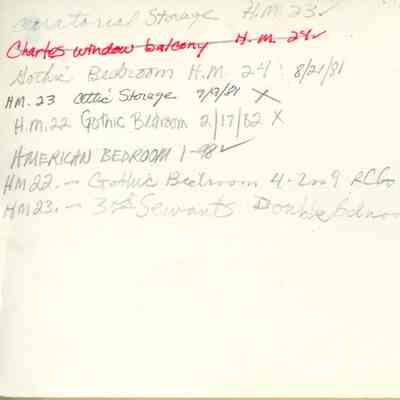 Storage H.M. 23 ✓
Charles window balcony H.M. 24 ✓
Gothic Bedroom H.M. 24 8/21/81
HM. 23 Attic Storage 7/9/81 X
H.M. 22 Gothic Bedroom 2/17/82 X
AMERICAN BEDROOM 1-98 ✓
HM 22. - Gothic Bedroom 4-2009
HM 23. - 3rd Servants Double